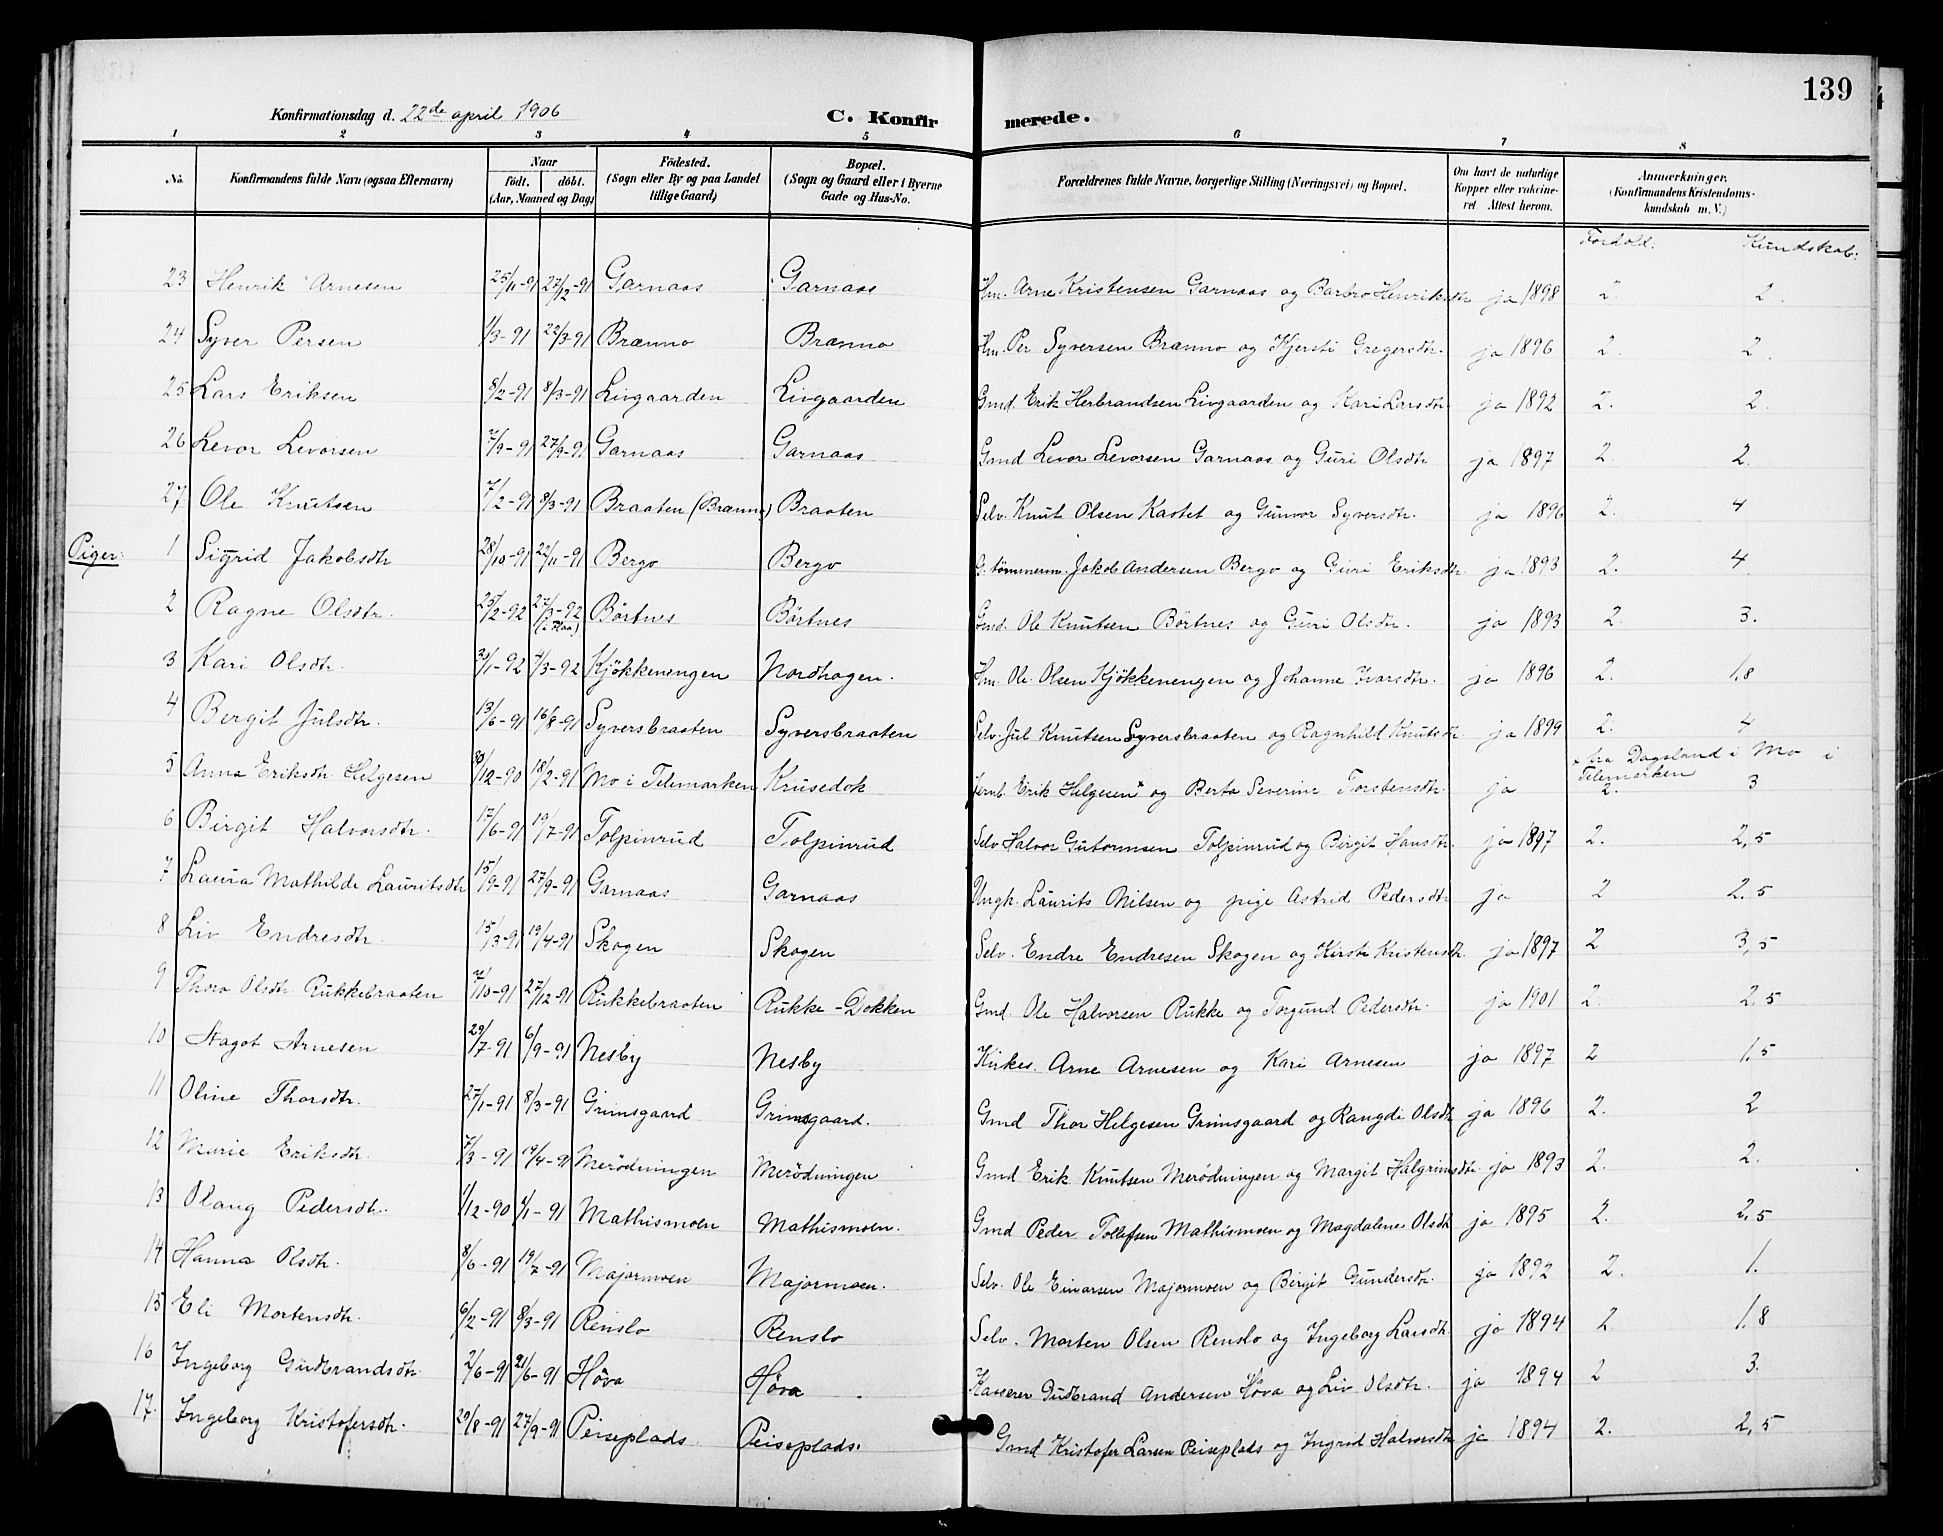 139
Konfirmationsdag d. 22de april 1906 C. Konfirmerede.
1 2 3 4 5 6 7 8
No. Konfirmandens fulde Navn (ogsaa Efternavn) Naar født. døbt. (Aar, Maaned og Dag) Födested. (Sogn eller By og paa Landet tillige Gaard) Bopæl. (Sogn og Gaard eller i Byerne Gade og Hus-No. Forældrenes fulde Navne, borgerlige Stilling (Næringsvei) og Bopæl. Om havt de naturlige Kopper eller vaksineret. Attest herom. Anmerkninger. (Konfirmandens Kristendomskundskab m. V.)
Forhold. Kundskab:
23 Henrik Arnesen 25/11-91 27/12-91 Garnaas Garnaas Hm. Arne Kristensen Garnaas og Barbro Henriksdtr ja 1898 2. 2.
24 Syver Persen 1/3-91 22/3-91 Brænno Brænno Hm. Per Syversen Brænno og Kjersti Gregersdtr. ja 1896 2. 2.
25 Lars Eriksen 8/2-91 8/3-91 Livgaarden Livgaarden Gmd. Erik Herbrandsen Livgaarden og Kari Larsdtr ja 1892 2. 2.
26 Levor Levorsen 7/9-91 27/9-91 Garnaas Garnaas Gmd Levor Levorsen Garnaas og Guri Olsdtr ja 1897 2. 2.
27. Ole Knutsen 7/2-91 8/3-91 Braaten (Brænno) Braaten Selv. Knut Olsen Kastet og Gunvor Syversdtr. ja 1896 2. 4
Piger: 1 Sigrid Jakobsdtr 28/10-91 22/11-91 Bergo Bergo G. tømmerm. Jakob Andersen Bergo og Guri Eriksdtr ja 1893 2. 4
2 Ragne Olsdtr. 25/2-92 27/3-92 (i Flaa) Børtnes Børtnes Gmd. Ole Knutsen Børtnes og Guri Olsdtr. ja 1893 2. 3.
3 Kari Olsdtr. 30/1-92 4/3-92 Kjøkkenengen Nordhagen. Hm. Ole Olsen Kjøkkenengen og Johanne Ivarsdtr. ja 1896 2. 1,8
4 Bergit Julsdtr. 13/6-91 16/8-91 Syversbraaten Syversbraaten Selv. Jul Knutsen Syversbraaten og Ragnhild Knutsdtr ja 1899 2. 4
x fra Dagsland i Mo i Telemarken
5 Anna Eriksdtr Helgesen 30/12-90 18/2-91 Mo i Telemarken Krusedok Jernb. Erik Helgesen x og Berta Severine Torstensdtr. ja 2. 3
6 Birgit Halvorsdtr. 17/6-91 19/7-91 Tolpinrud Tolpinrud Selv Halvor Gutormsen Tolpinrud og Birgit Hansdtr. ja 1897 2. 2,5
7 Laura Mathilde Lauritsdtr 15/9-91 27/9-91 Garnaas Garnaas Ungk. Laurits Nilsen og pige Astrid Pedersdtr ja 2 2,5
8 Liv Endresdtr. 15/3-91 19/4-91 Skogen Skogen Selv. Endre Endresen Skogen og Kirsti Kristensdtr. ja 1897 2 3,5
9 Thora Olsdtr Rukkebraaten 7/10-91 27/12-91 Rukkebraaten Rukke-Dokken Gmd. Ole Halvorsen Rukke og Torgund Pedersdtr. ja 1901 2. 2,5
10 Aagot Arnesen 29/7-91 6/9-91 Nesby Nesby Kirkes. Arne Arnesen og Kari Arnesen ja 1897 2 1.5
11 Oline Thorsdtr. 27/1-91 8/3-91 Grimsgaard Grimsgaard. Gmd Thor Helgesen Grimsgaard og Rangdi Olsdtr ja 1896 2. 2
12 Marie Eriksdtr. 7/3-91 19/4-91 Merødningen Merødningen Gmd. Erik Knutsen Merødningen og Margit Halgrimsdtr. ja 1893 2. 2.
13 Olaug Pedersdtr. 1/12-90 1/1-91 Mathismoen Mathismoen. Gmd Peder Tollefsen Mathismoen og Magdalene Olsdtr ja 1895 2. 2,5
14 Hanna Olsdtr. 8/6-91 19/7-91 Majormoen Majormoen. Selv. Ole Einarsen Majormoen og Birgit Gundersdtr. ja 1892 2. 1.
15 Eli Mortensdtr. 6/2-91 8/3-91 Renslo Renslo Selv. Morten Olsen Renslo og Ingeborg Larsdtr. ja 1894 2. 1.8
16 Ingeborg Gudbrandsdtr. 2/6-91 21/6-91 Høva Høva Kasserer Gudbrand Andersen Høva og Liv Olsdtr. ja 1894 2 3.
17. Ingeborg Kristofersdtr. 29/8-91 27/9-91 Peiseplads Peiseplads. Gmd Kristofer Larsen Peiseplads og Ingrid Halvorsdtr ja 1894 2. 2,5